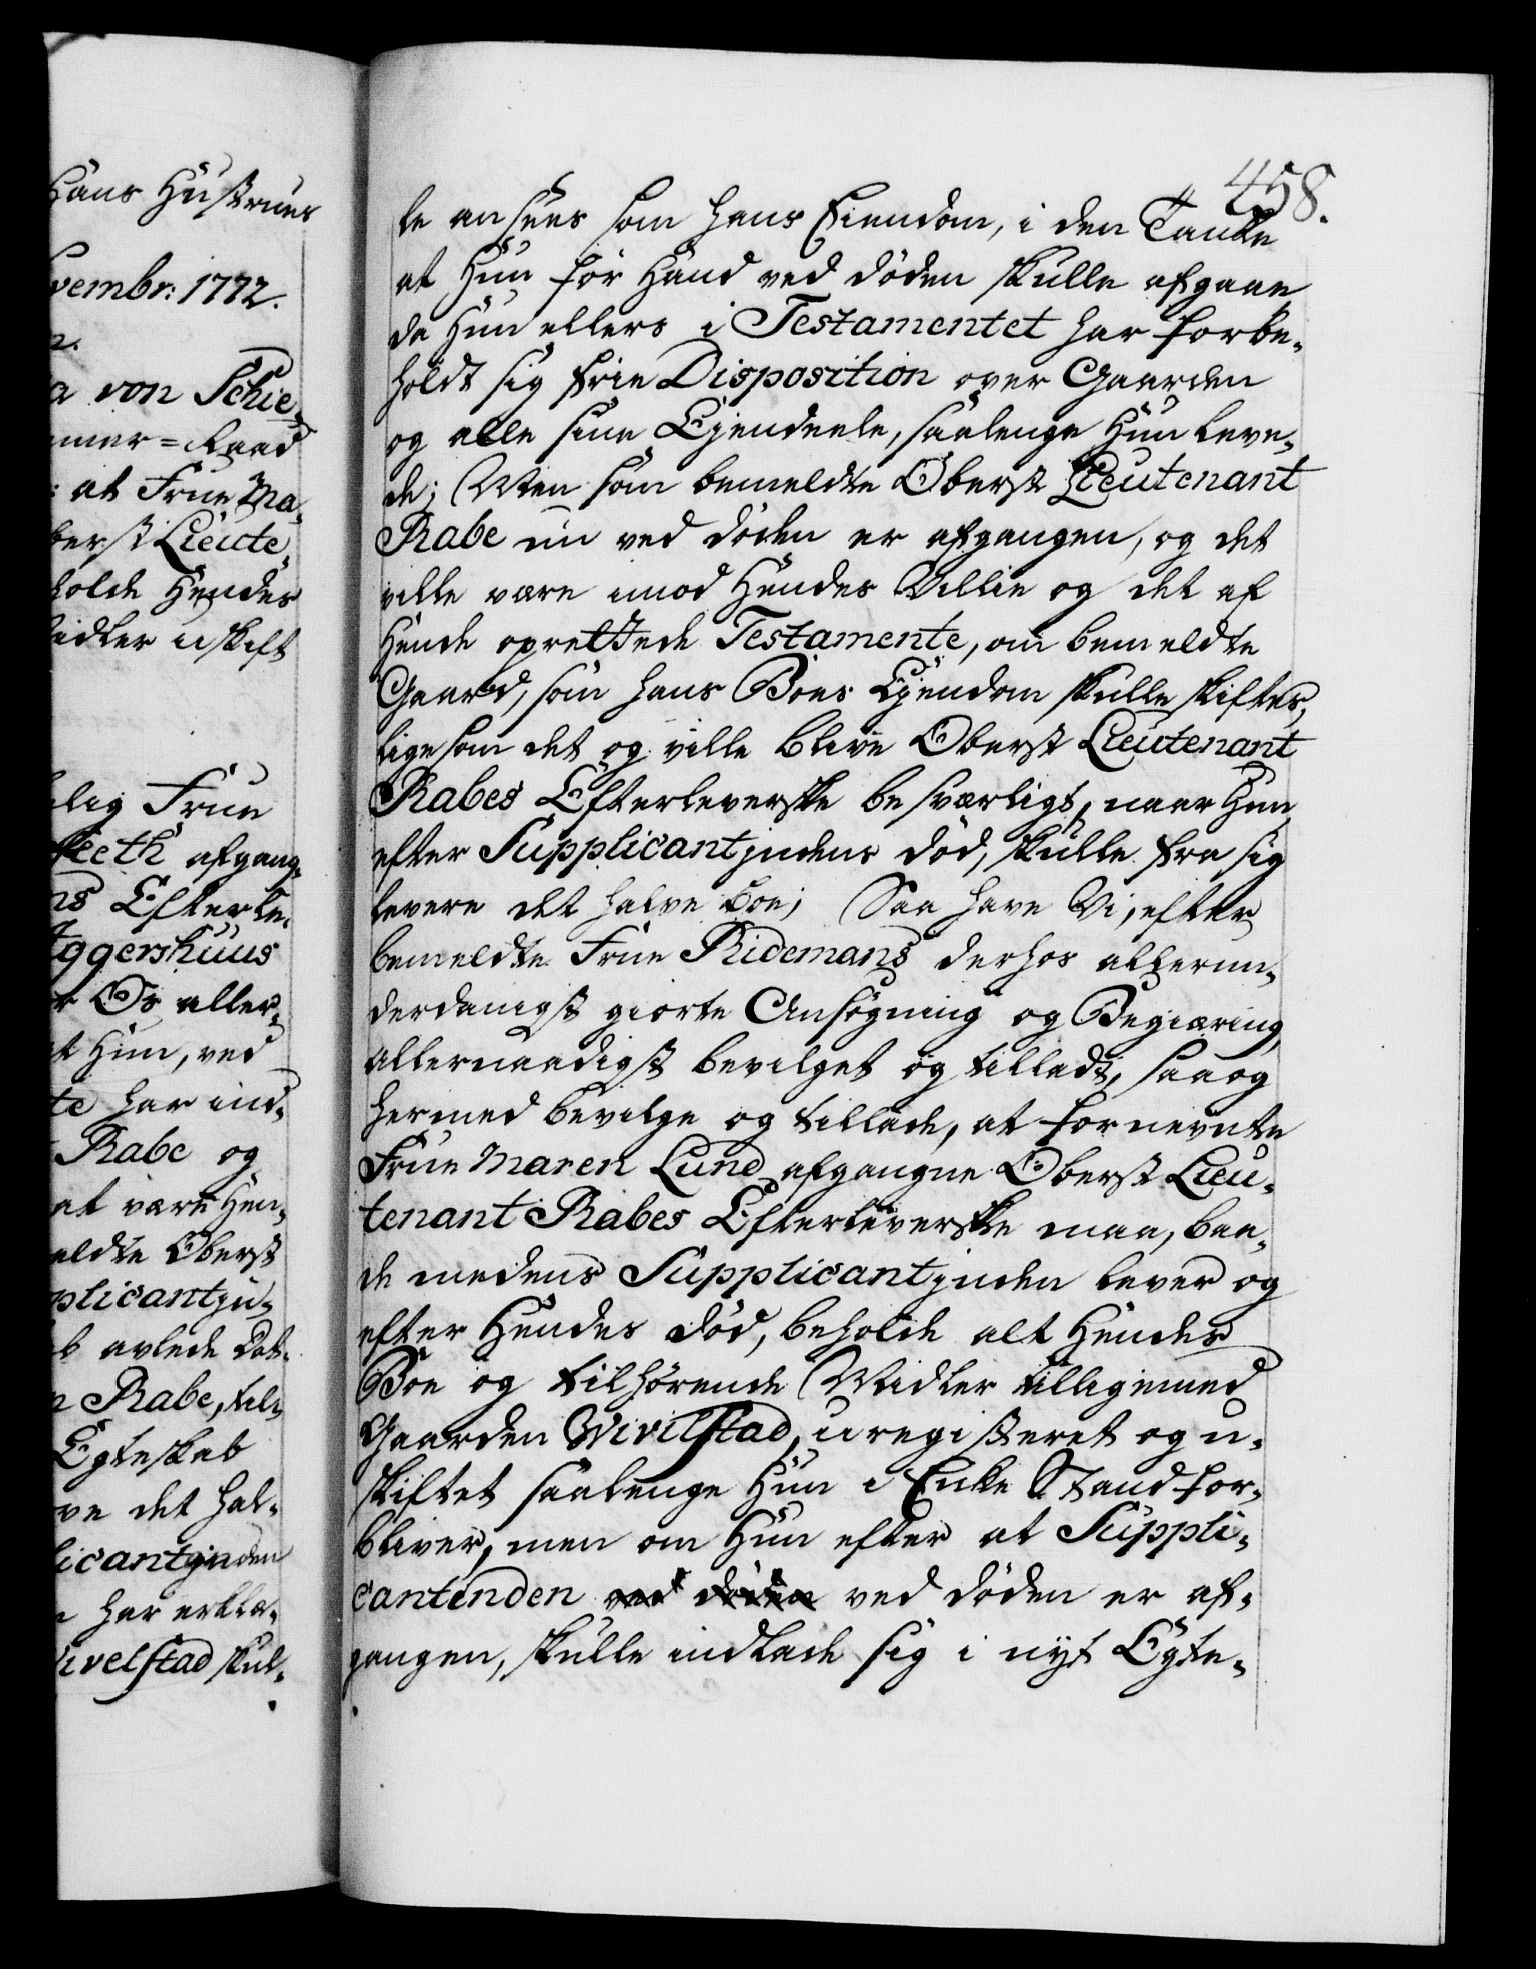 Hans Hustrues
vembr: 1772.
a von Schie-
mer=Raad
: at Frue Ma-
berst Lieute-
holde Hendes
idler uskift
lig Frue
afgang-
ns Efterle-
Aggershuus
r Os aller-
t Hun, ved
te har ind-
Rabe og
at være Hen-
eldte Oberst
plicantin-
b avlede Dot-
n Rabe, til-
Egteskab
ve det hal-
licantinden
har erklæ-
ivelstad skul-
458.
le ansees som hans Eiendom, i den Tanke
at Hun før Hand ved døden skulle afgaae,
da Hun ellers i Testamentet har forbe-
holdt sig frie Disposition over Gaarden
og alle sine Ejendeele, saalenge Hun leve-
de; Men som bemeldte Oberst Lieutenant
Rabe nu ved døden er afgangen, og det
ville være imod Hendes Villie og det af
Hende oprettede Testamente, om bemeldte
Gaard, som hans Boes Ejendom skulle skiftes,
ligesom det og ville blive Oberst Lieutenant
Rabes Efterleverske besværligt, naar Hun
efter Supplicantindens død, skulle fra sig
levere det halve Boe; Saa have Vi, efter
bemeldte Frue Ridemans derhos allerun-
derdanigst giorte Ansøgning og Begiæring,
allernaadigst bevilget og tilladt, saa og
hermed bevilge og tillade, at fornevnte
Frue Maren Lund afgangne Oberst Lieu-
tenant Rabes Efterleverske maa, baa-
de medens Supplicantinden lever og
efter Hendes død, beholde alt Hendes
Boe og tilhørende Midler tilligemed
Gaarden Wivilstad, uregisteret og u-
skiftet saalenge Hun i Enke Stand for-
bliver, men om Hun efter at Suppli-
cantinden ved døden ved døden er af-
gangen, skulle indlade sig i nyt Egte-